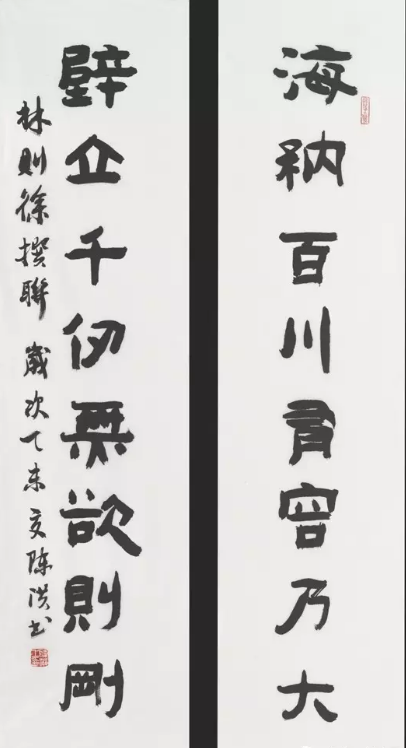 海納百川有容乃大
壁立千仞無欲則剛
林則徐撰聯 歲次乙未夏陳洪書